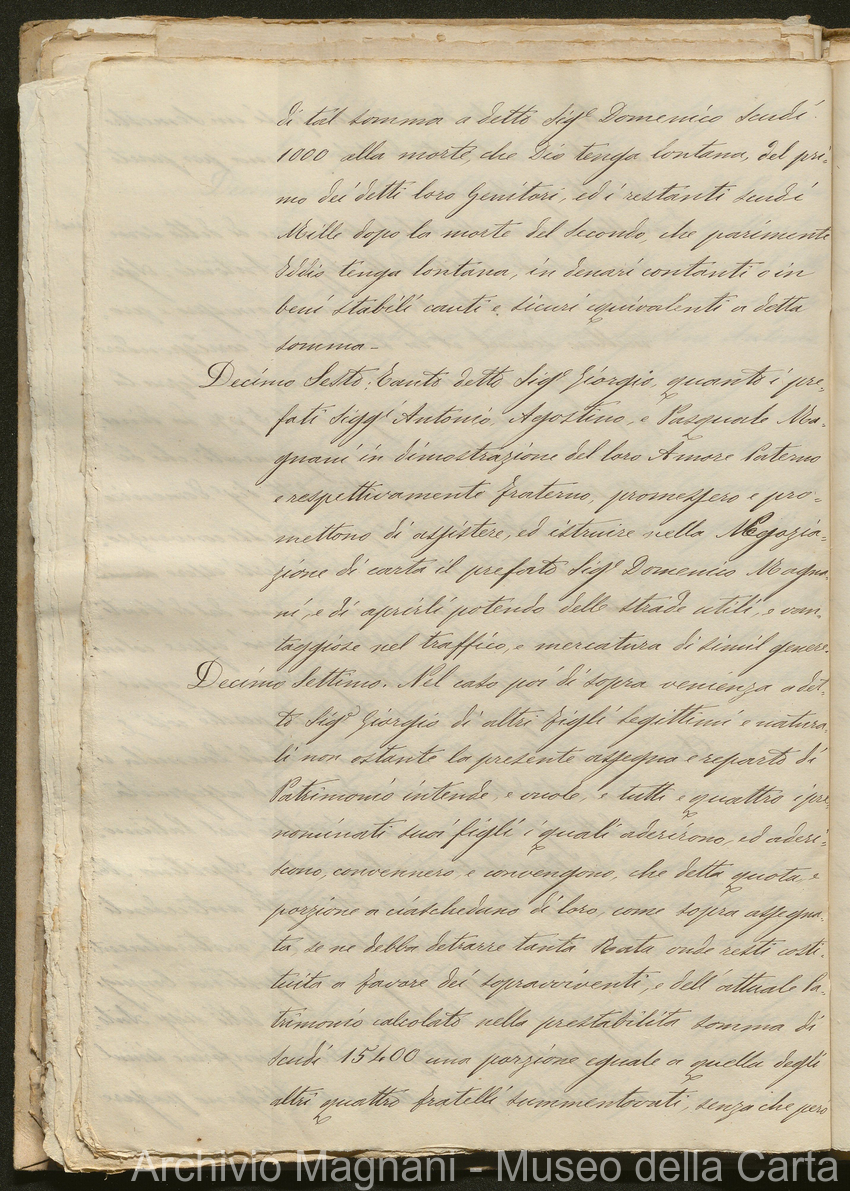 di tal somma a detto Sigr Domenico scudi
1000 alla morte, che Dio tenga lontana, del pri=
mo dei detti loro Genitori, ed i restanti scudi
Mille dopo la morte del secondo, che parimente
Iddio tenga lontana, in denari contanti o in
beni stabili cauti e sicuri equivalenti a detta
somma -
Decimo Sesto. Tanto detto Sigr Giorgio, quanto i pre=
fati Siggri Antonio, Agostino, e Pasquale Ma=
gnani in dimostrazione del loro Amore Paterno
e respettivamente fraterno, promessero e pro=
mettono di assistere, ed istruire nella Negozia=
zione di carta il prefato Sigr Domenico Magna=
ni, e di aprirli potendo delle strade utili, e van=
taggiose nel traffico, e mercatura di simil genere.
Decimo Settimo. Nel caso poi di sopra venienza a det=
to Sigr Giorgio di altri figli legittimi e natura=
li non ostante la presente assegna e reparto di
Patrimonio intende, e vuole, e tutti e quattro i pre=
nominati suoi figli i quali aderirono, ed aderi=
scono, convennero, e convengono, che detta quota, e
porzione a ciascheduno di loro, come sopra assegna=
ta, se ne debba detrarre tanta Rata onde resti costi=
tuita a favore dei sopravviventi, e dell'attuale Pa=
trimonio calcolato nella prestabilita somma di
Scudi 15400 una porzione eguale a quella degli
altri quattro fratelli summentovati, senza che però
Archivio Magnani - Museo della Carta